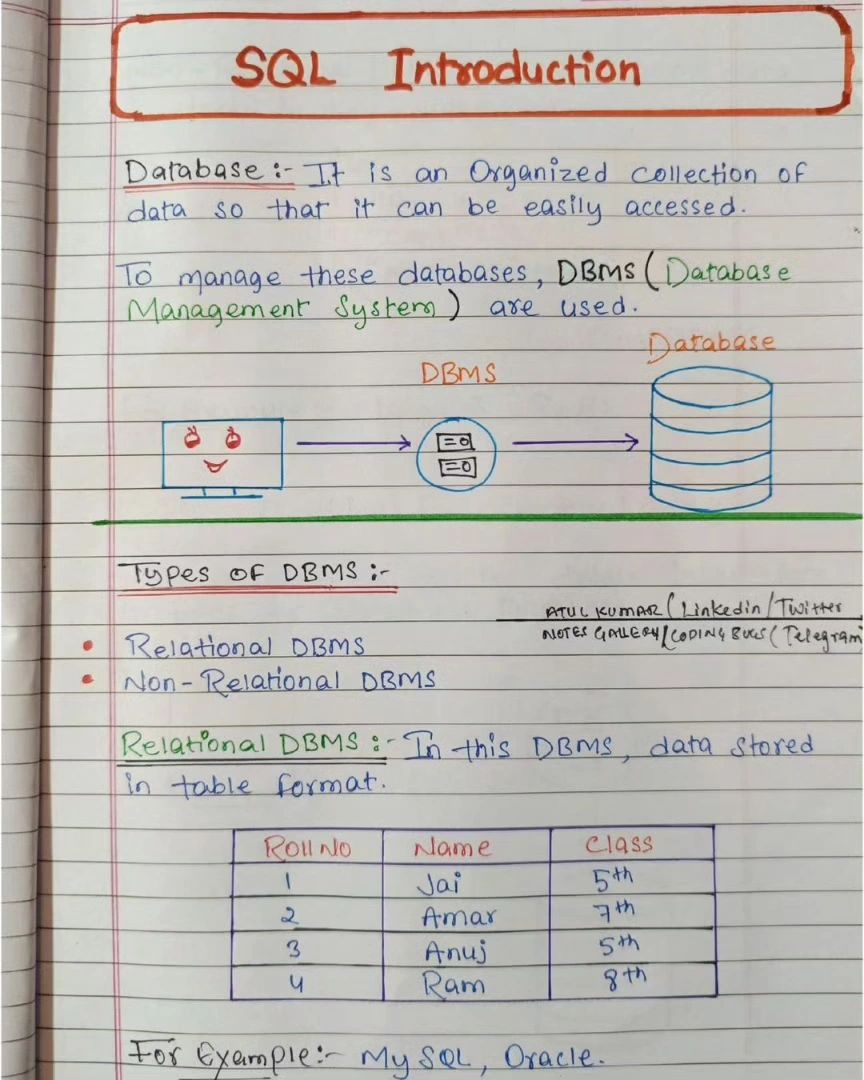 SQL Introduction
Database :- It is an Organized collection of
data so that it can be easily accessed.
To manage these databases, DBMS (Database
Management System) are used.
Database
DBMS
Types of DBMS :-
ATUL KUMAR (Linkedin/Twitter
NOTES GALLERY/CODING BUGS (Telegram
• Relational DBMS
• Non-Relational DBMS
Relational DBMS :- In this DBMS, data stored
in table format.
Roll No Name Class
1 Jai 5th
2 Amar 7th
3 Anuj 5th
4 Ram 8th
For Example:- My SQL, Oracle.